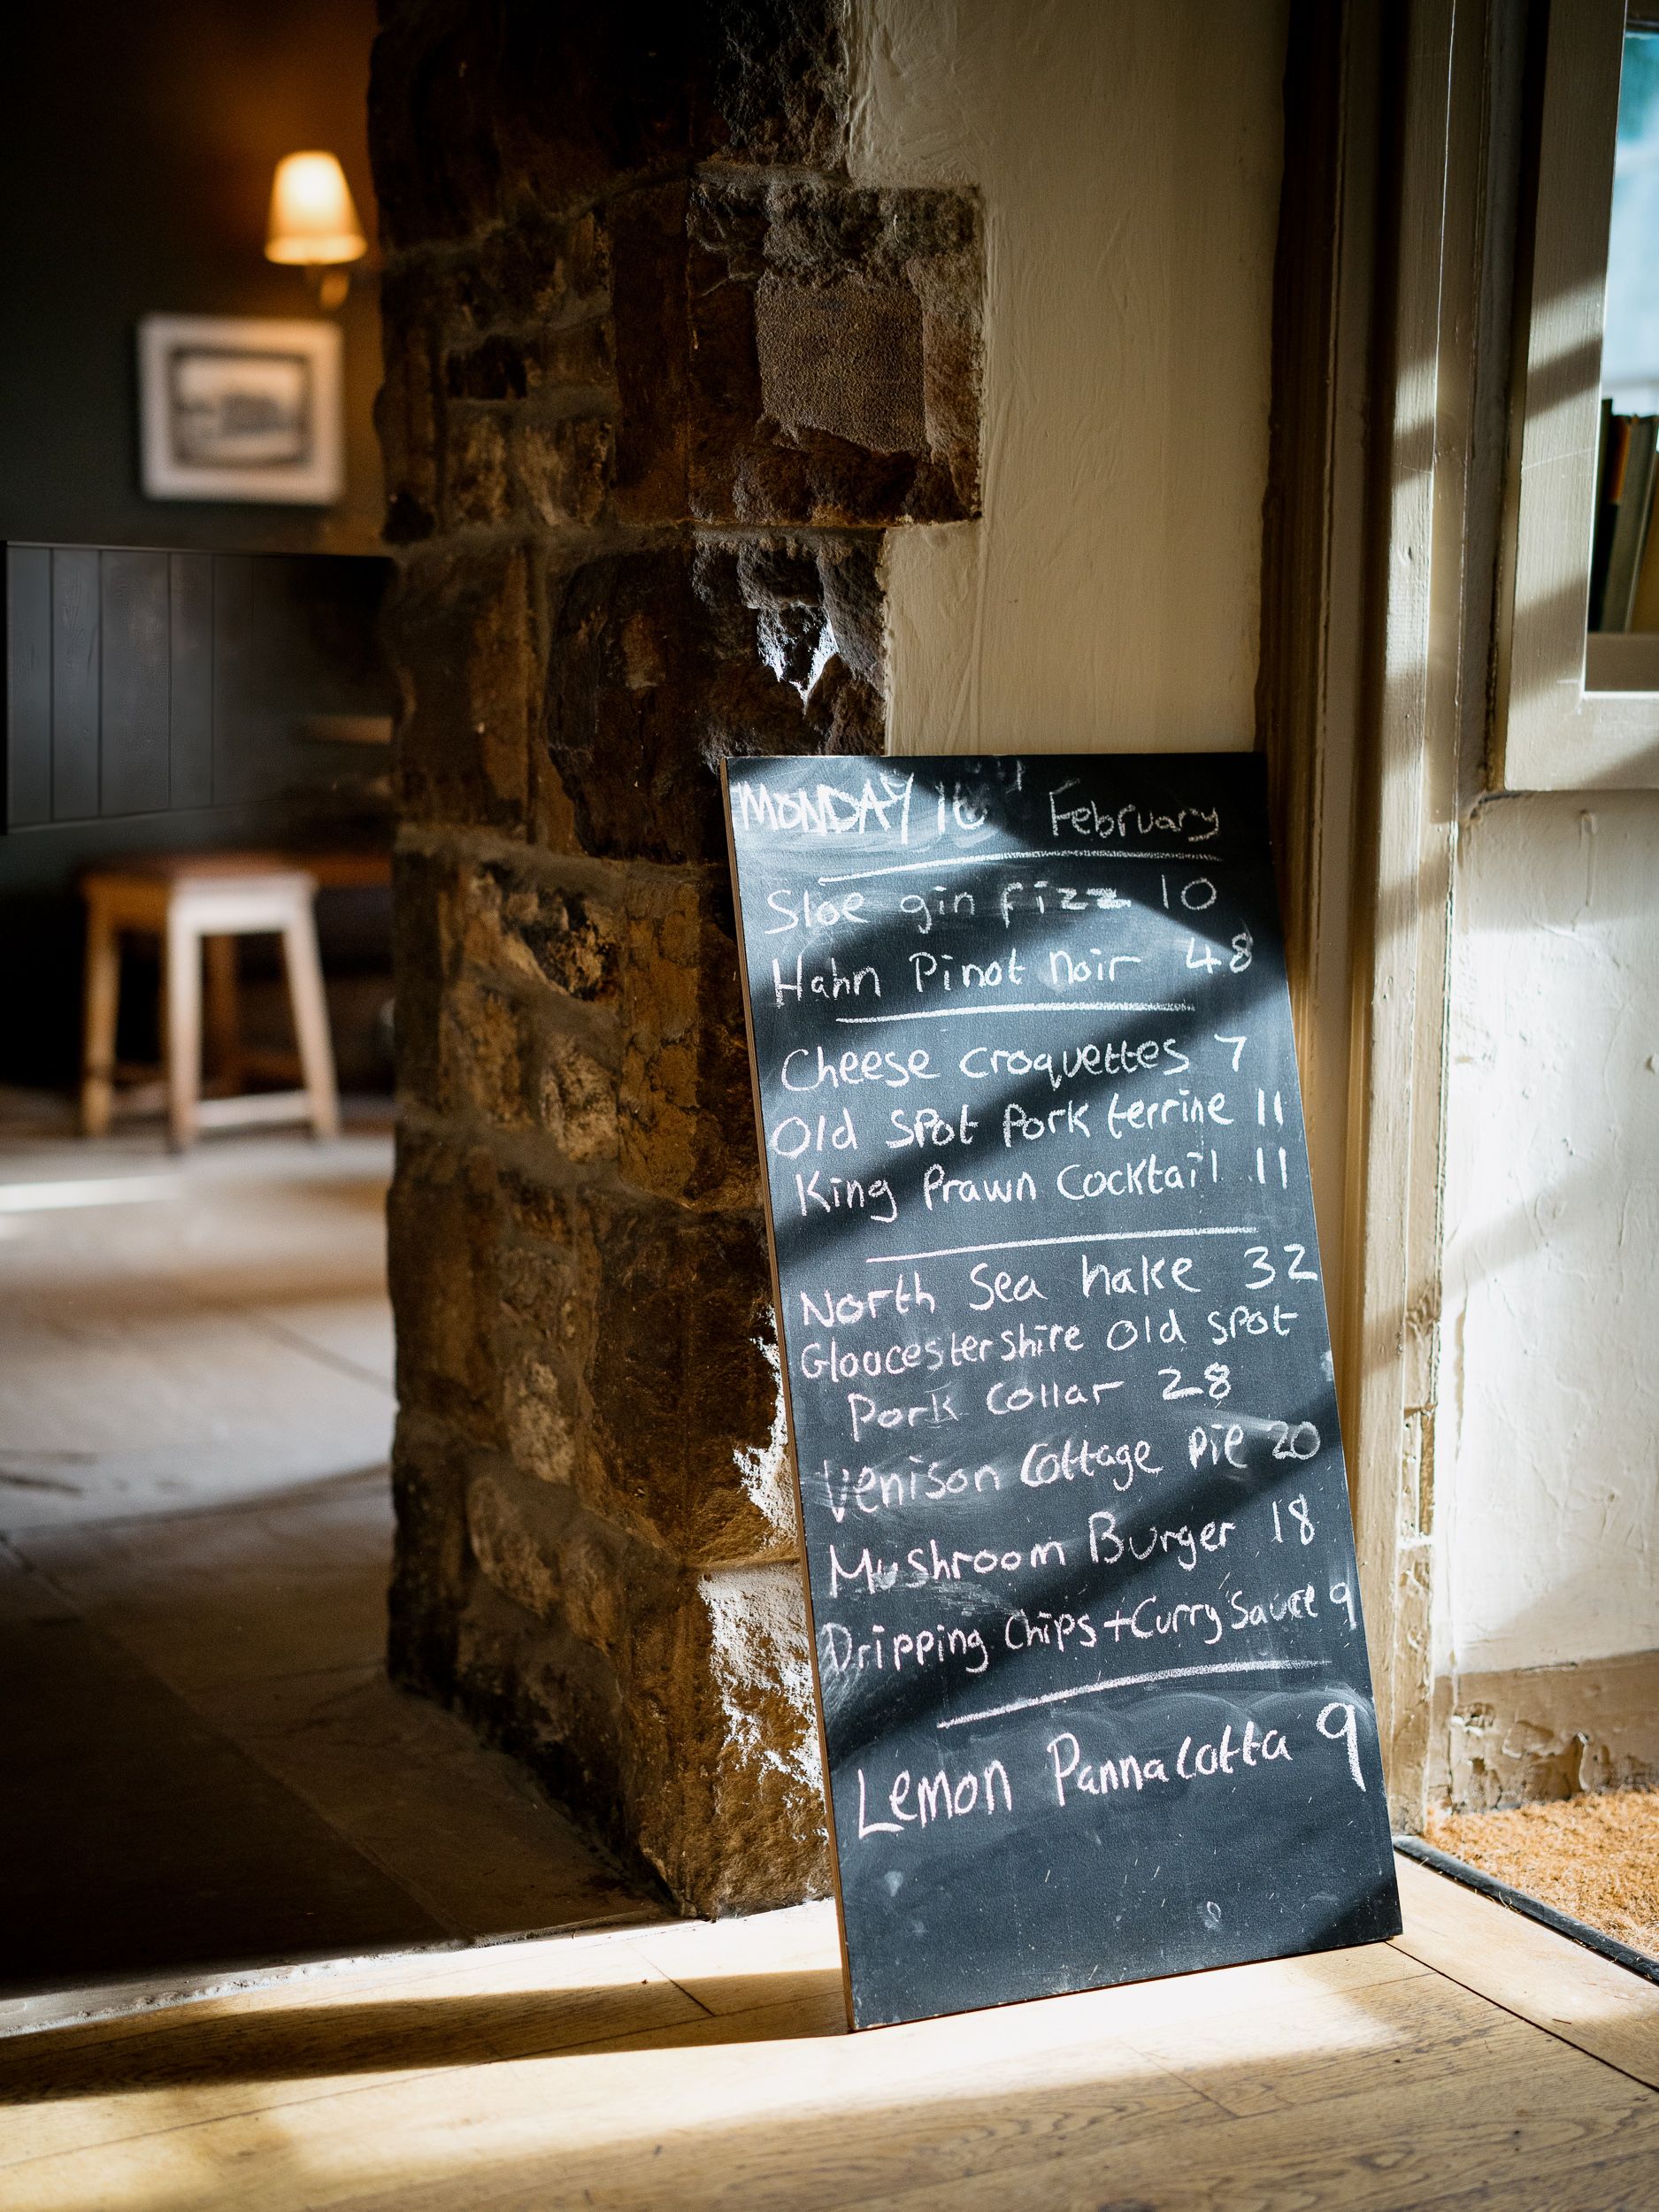 MONDAY 16 February
Sloe gin fizz 10
Hahn Pinot Noir 48
Cheese croquettes 7
Old Spot Pork terrine 11
King Prawn Cocktail 11
North Sea hake 32
Gloucestershire Old Spot
Pork Collar 28
Venison Cottage Pie 20
Mushroom Burger 18
Dripping Chips + Curry Sauce 9
Lemon Pannacotta 9